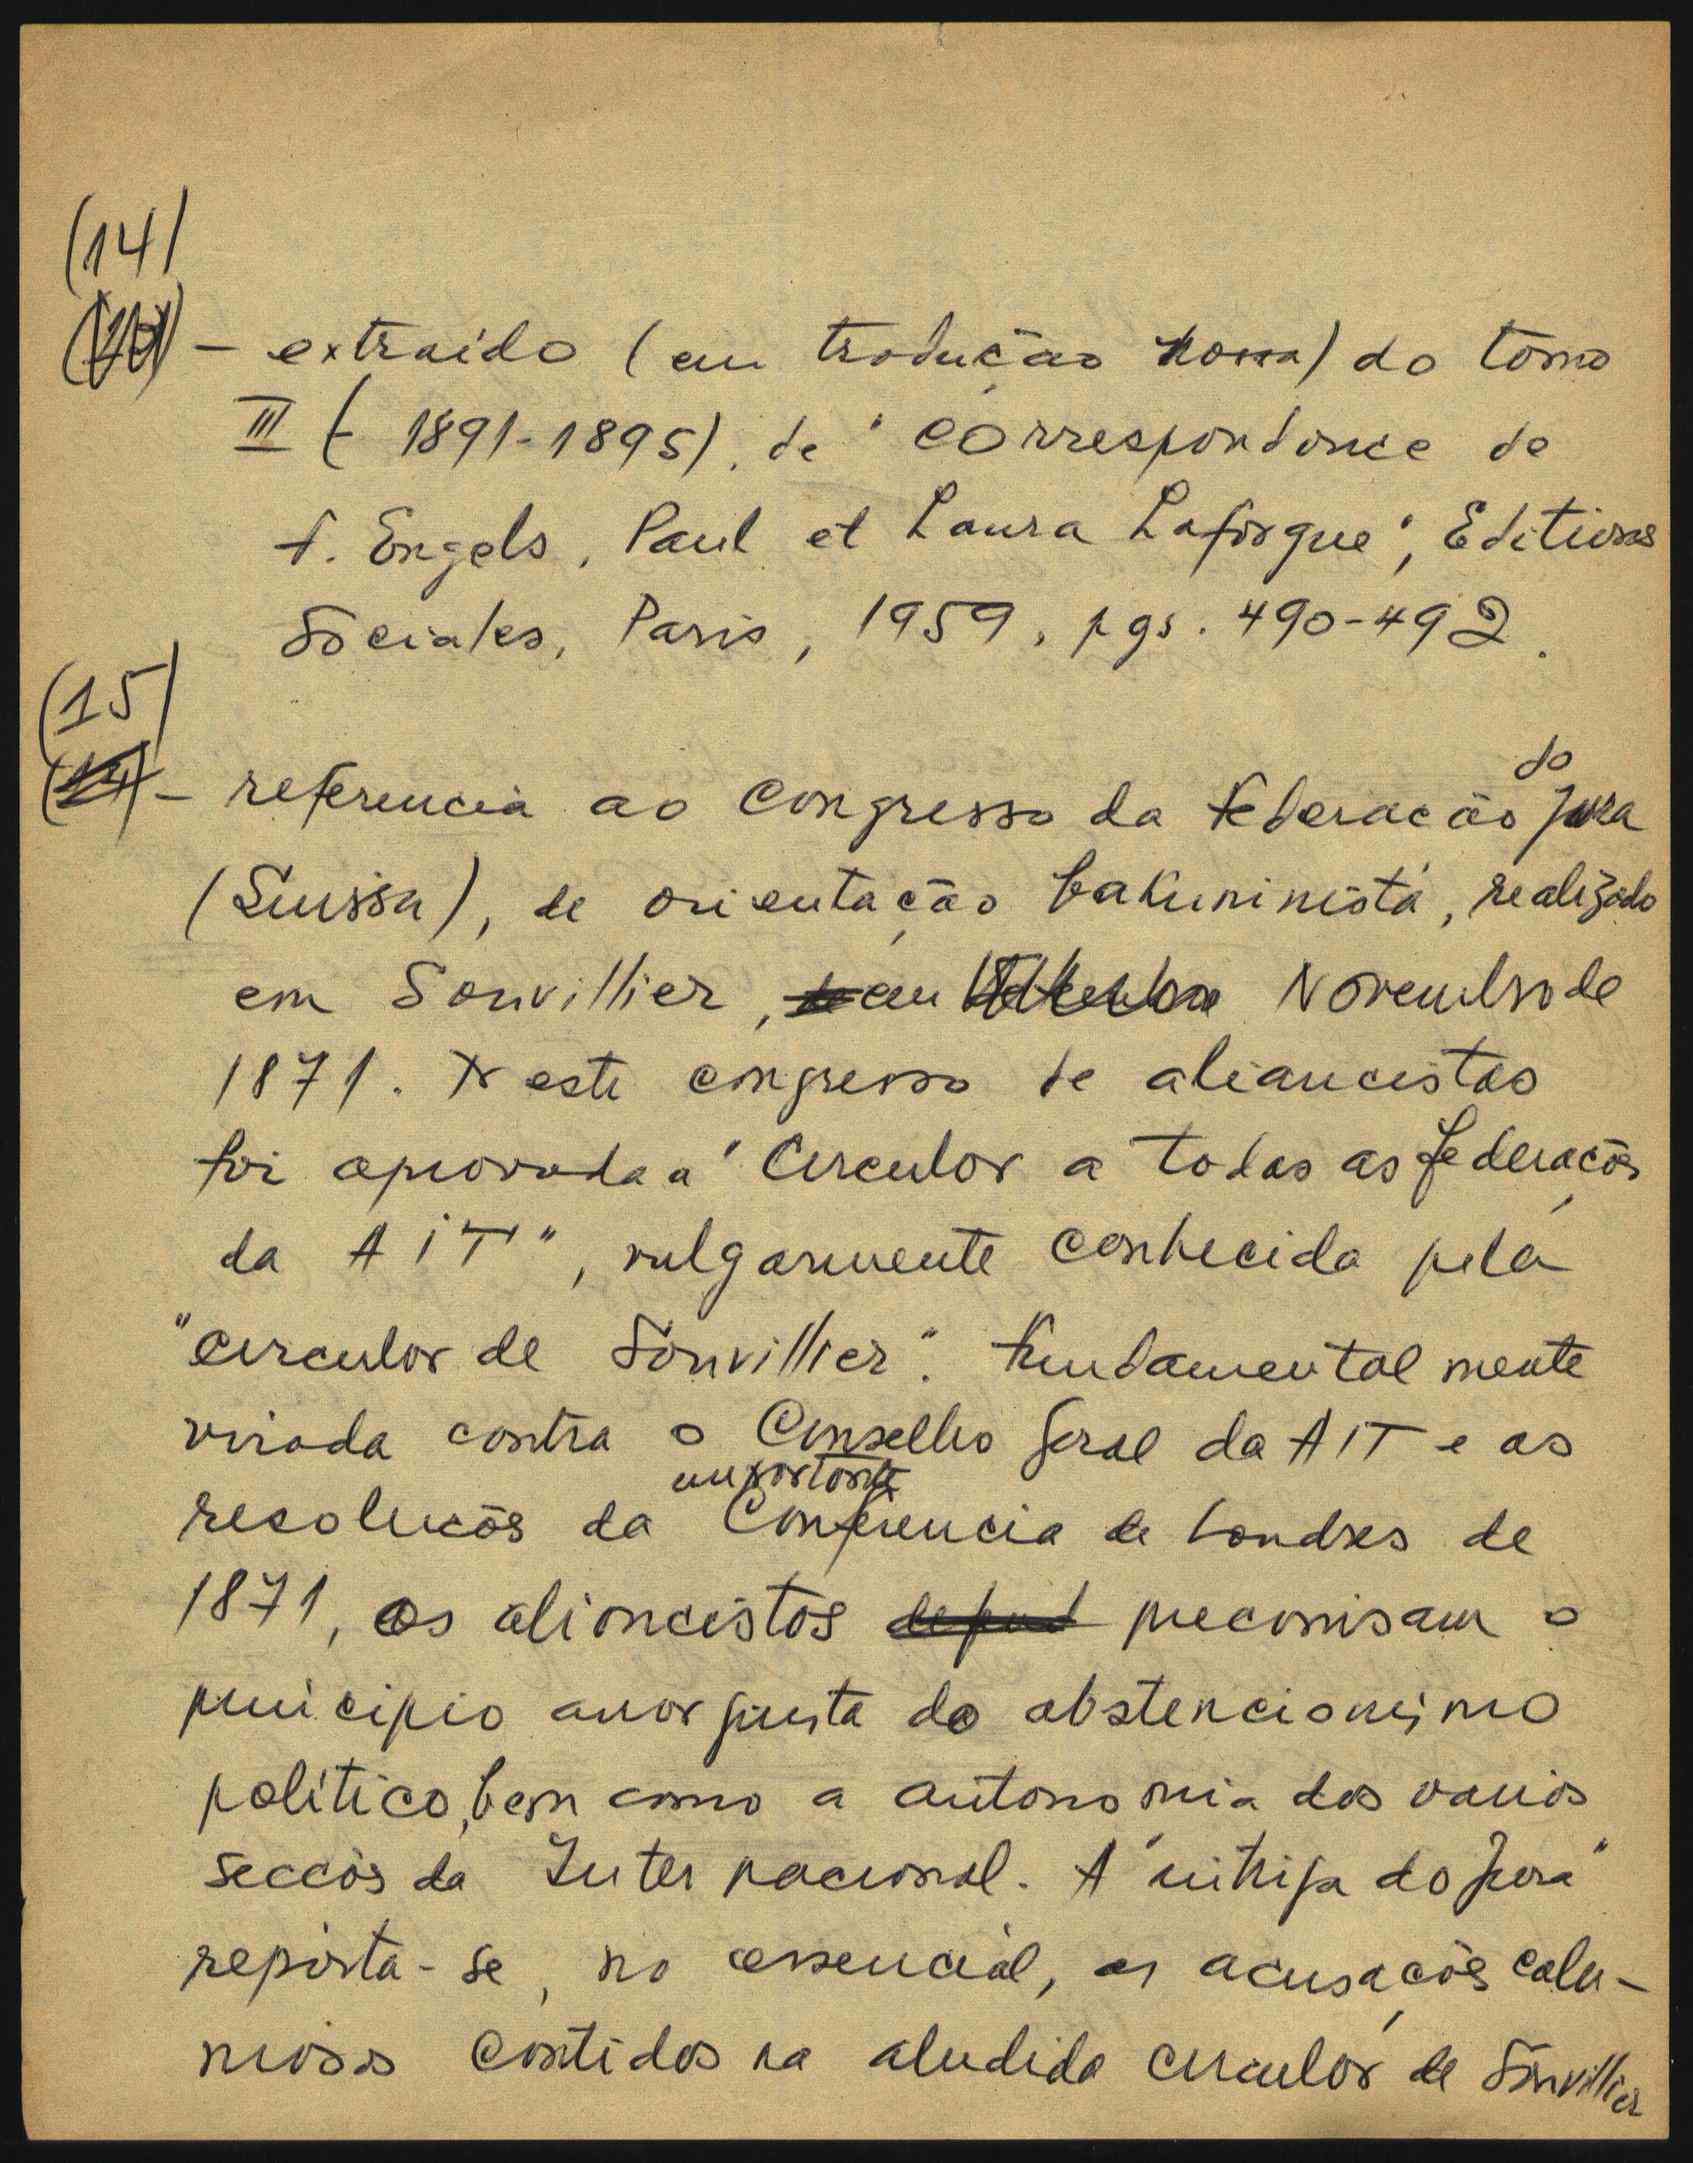 (14)
- extraido (em tradução nossa) do tomo
III (- 1891-1895), de "Correspondance de
F. Engels, Paul et Laura Lafargue", Editions
Sociales, Paris, 1959, pgs. 490-492.
(15)
(14) - referencia ao Congresso da Federação do Jura
(Suissa), de orientação bakuninista, realizado
em Sonvillier, em Novembro de
1871. Neste congresso de aliancistas
foi aprovada a "Circular a todas as federações
da AIT", vulgarmente conhecida pela
"circular de Sonvillier". Fundamentalmente
virada contra o Conselho Geral da AIT e as
resoluções da importante Conferencia de Londres de
1871, os aliancistas preconisam o
principio anarquista do abstencionismo
politico, bem como a autonomia das varias
secções da Internacional. A "intriga do Jura"
reporta-se, no essencial, as acusações calu-
niosas contidas na aludida circular de Sonvillier